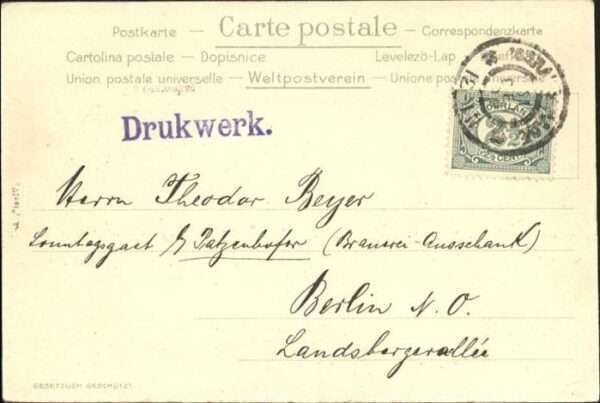 Postkarte — Carte postale — Correspondenzkarte
Cartolina postale — Dopisnice Levelezö-Lap
Union postale universelle — Weltpostverein — Unione postale universale
Drukwerk.
2½ CENT
Herrn Theodor Beyer
Sonntagsgast b/ Patzenhofer (Brauerei-Ausschank)
Berlin N. O.
Landsbergerallée
GESETZLICH GESCHÜTZT.